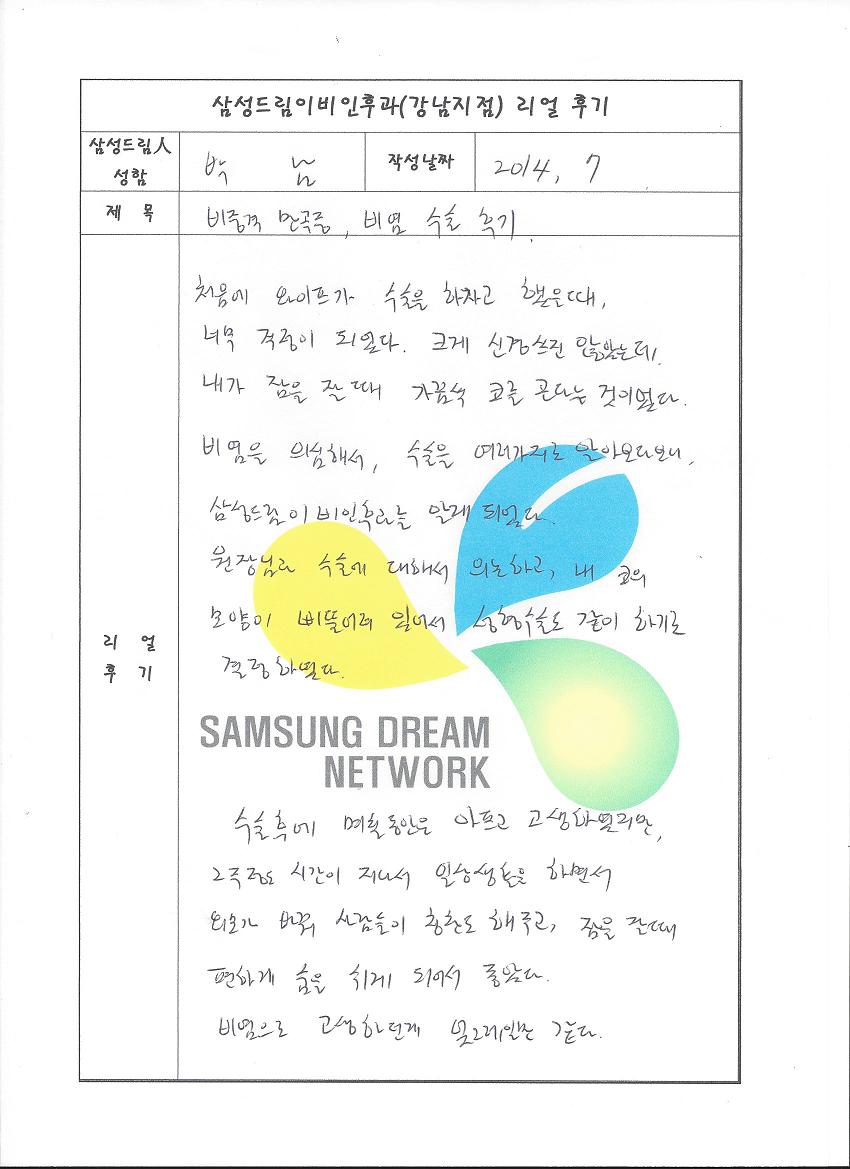 삼성드림이비인후과(강남지점) 리얼 후기
삼성드림人 성함
박 남
작성날짜
2014, 7
제 목
비중격 만곡증, 비염 수술 후기.
리 얼
후 기
처음에 와이프가 수술을 하자고 했을때,
너무 걱정이 되었다. 크게 신경쓰진 않았는데,
내가 잠을 잘 때 가끔씩 코를 곤다는 것이었다.
비염을 의심해서, 수술을 여러가지로 알아보다보니,
삼성드림이비인후과를 알게 되었다.
원장님과 수술에 대해서 의논하고, 내 코의
모양이 삐뚤어져 있어서 성형수술도 같이 하기로
결정하였다.
SAMSUNG DREAM
NETWORK
수술후에 며칠동안은 아프고 고생하였지만,
2주정도 시간이 지나서 일상생활을 하면서
외모가 바뀌 사람들이 칭찬도 해주고, 잠을 잘때
편하게 숨을 쉬게 되어서 좋았다.
비염으로 고생하던게 엊그제일만 같다.